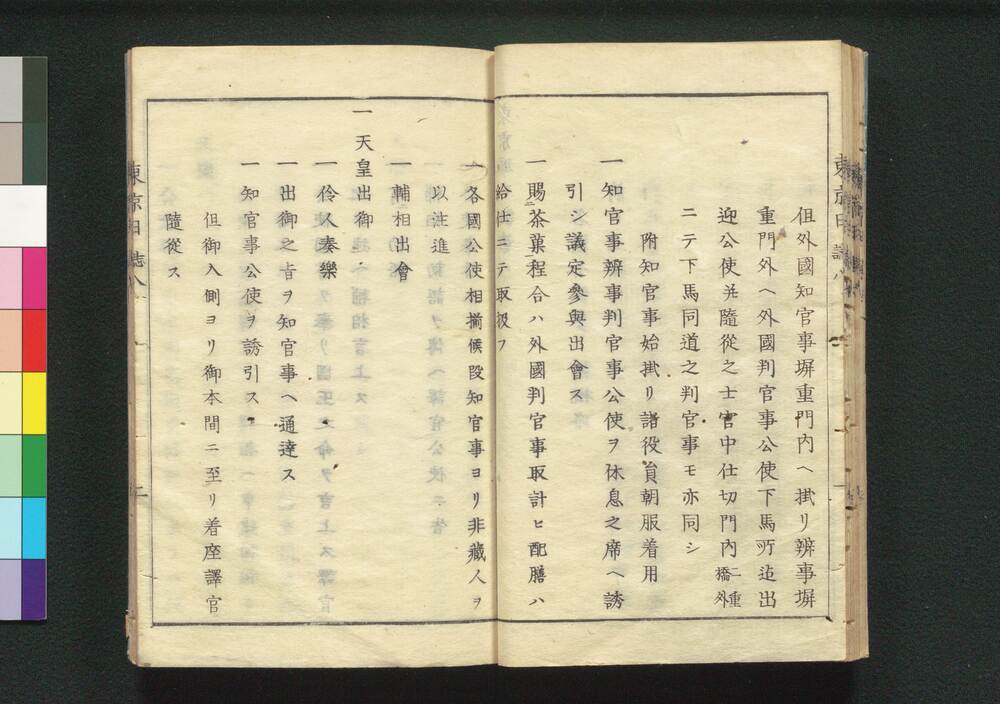 但外國知官事塀重門内ヘ掛リ辨事塀
重門外ヘ外國判官事公使下馬所迠出
迎公使并隨從之士官中仕切門内二重橋外
ニテ下馬同道之判官事モ亦同シ
附知官事始掛リ諸役員朝服着用
一知官事辨事判官事公使ヲ休息之席ヘ誘
引シ議定參與出會ス
一賜茶菓程合ハ外國判官事取計ヒ配膳ハ
給仕ニテ取扱フ
一各國公使相揃候段知官事ヨリ非藏人ヲ
以注進
一輔相出會
一天皇出御
一伶人奏樂
一出御之旨ヲ知官事ヘ通達ス
一知官事公使ヲ誘引ス
但御入側ヨリ御本間ニ至リ着座譯官
隨從ス
東京日誌八
二
東京日誌八